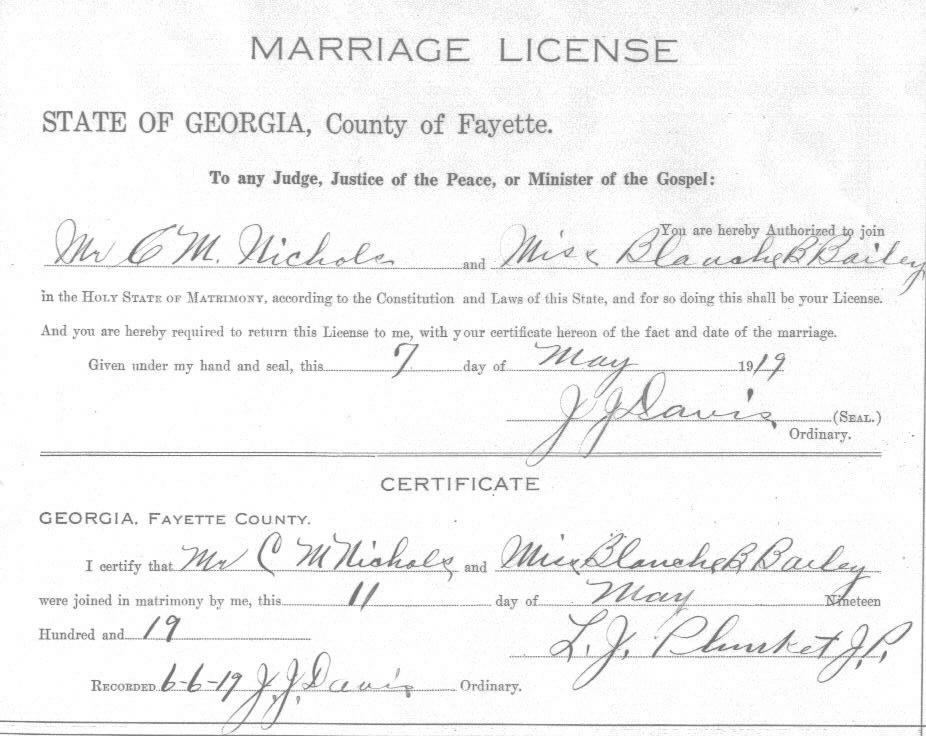 MARRIAGE LICENSE
STATE OF GEORGIA, County of Fayette.
To any Judge, Justice of the Peace, or Minister of the Gospel:
You are hereby Authorized to join
Mr C M. Nichols and Miss Blanche B Bailey
in the HOLY STATE OF MATRIMONY, according to the Constitution and Laws of this State, and for so doing this shall be your License.
And you are hereby required to return this License to me, with your certificate hereon of the fact and date of the marriage.
Given under my hand and seal, this 7 day of May 1919
J J Davis (SEAL.)
Ordinary.
CERTIFICATE
GEORGIA, FAYETTE COUNTY.
I certify that Mr C M Nichols and Miss Blanche B Bailey
were joined in matrimony by me, this 11 day of May Nineteen
Hundred and 19
L. J. Plunket J.P.
RECORDED 6-6-19 J. J. Davis Ordinary.